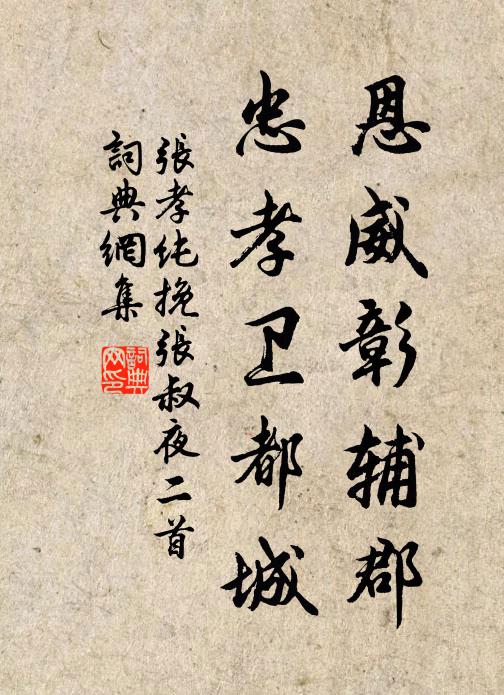 恩威彰辅郡
忠孝卫都城
張孝純挽張叔夜二首
詞典網集
詞典
网印